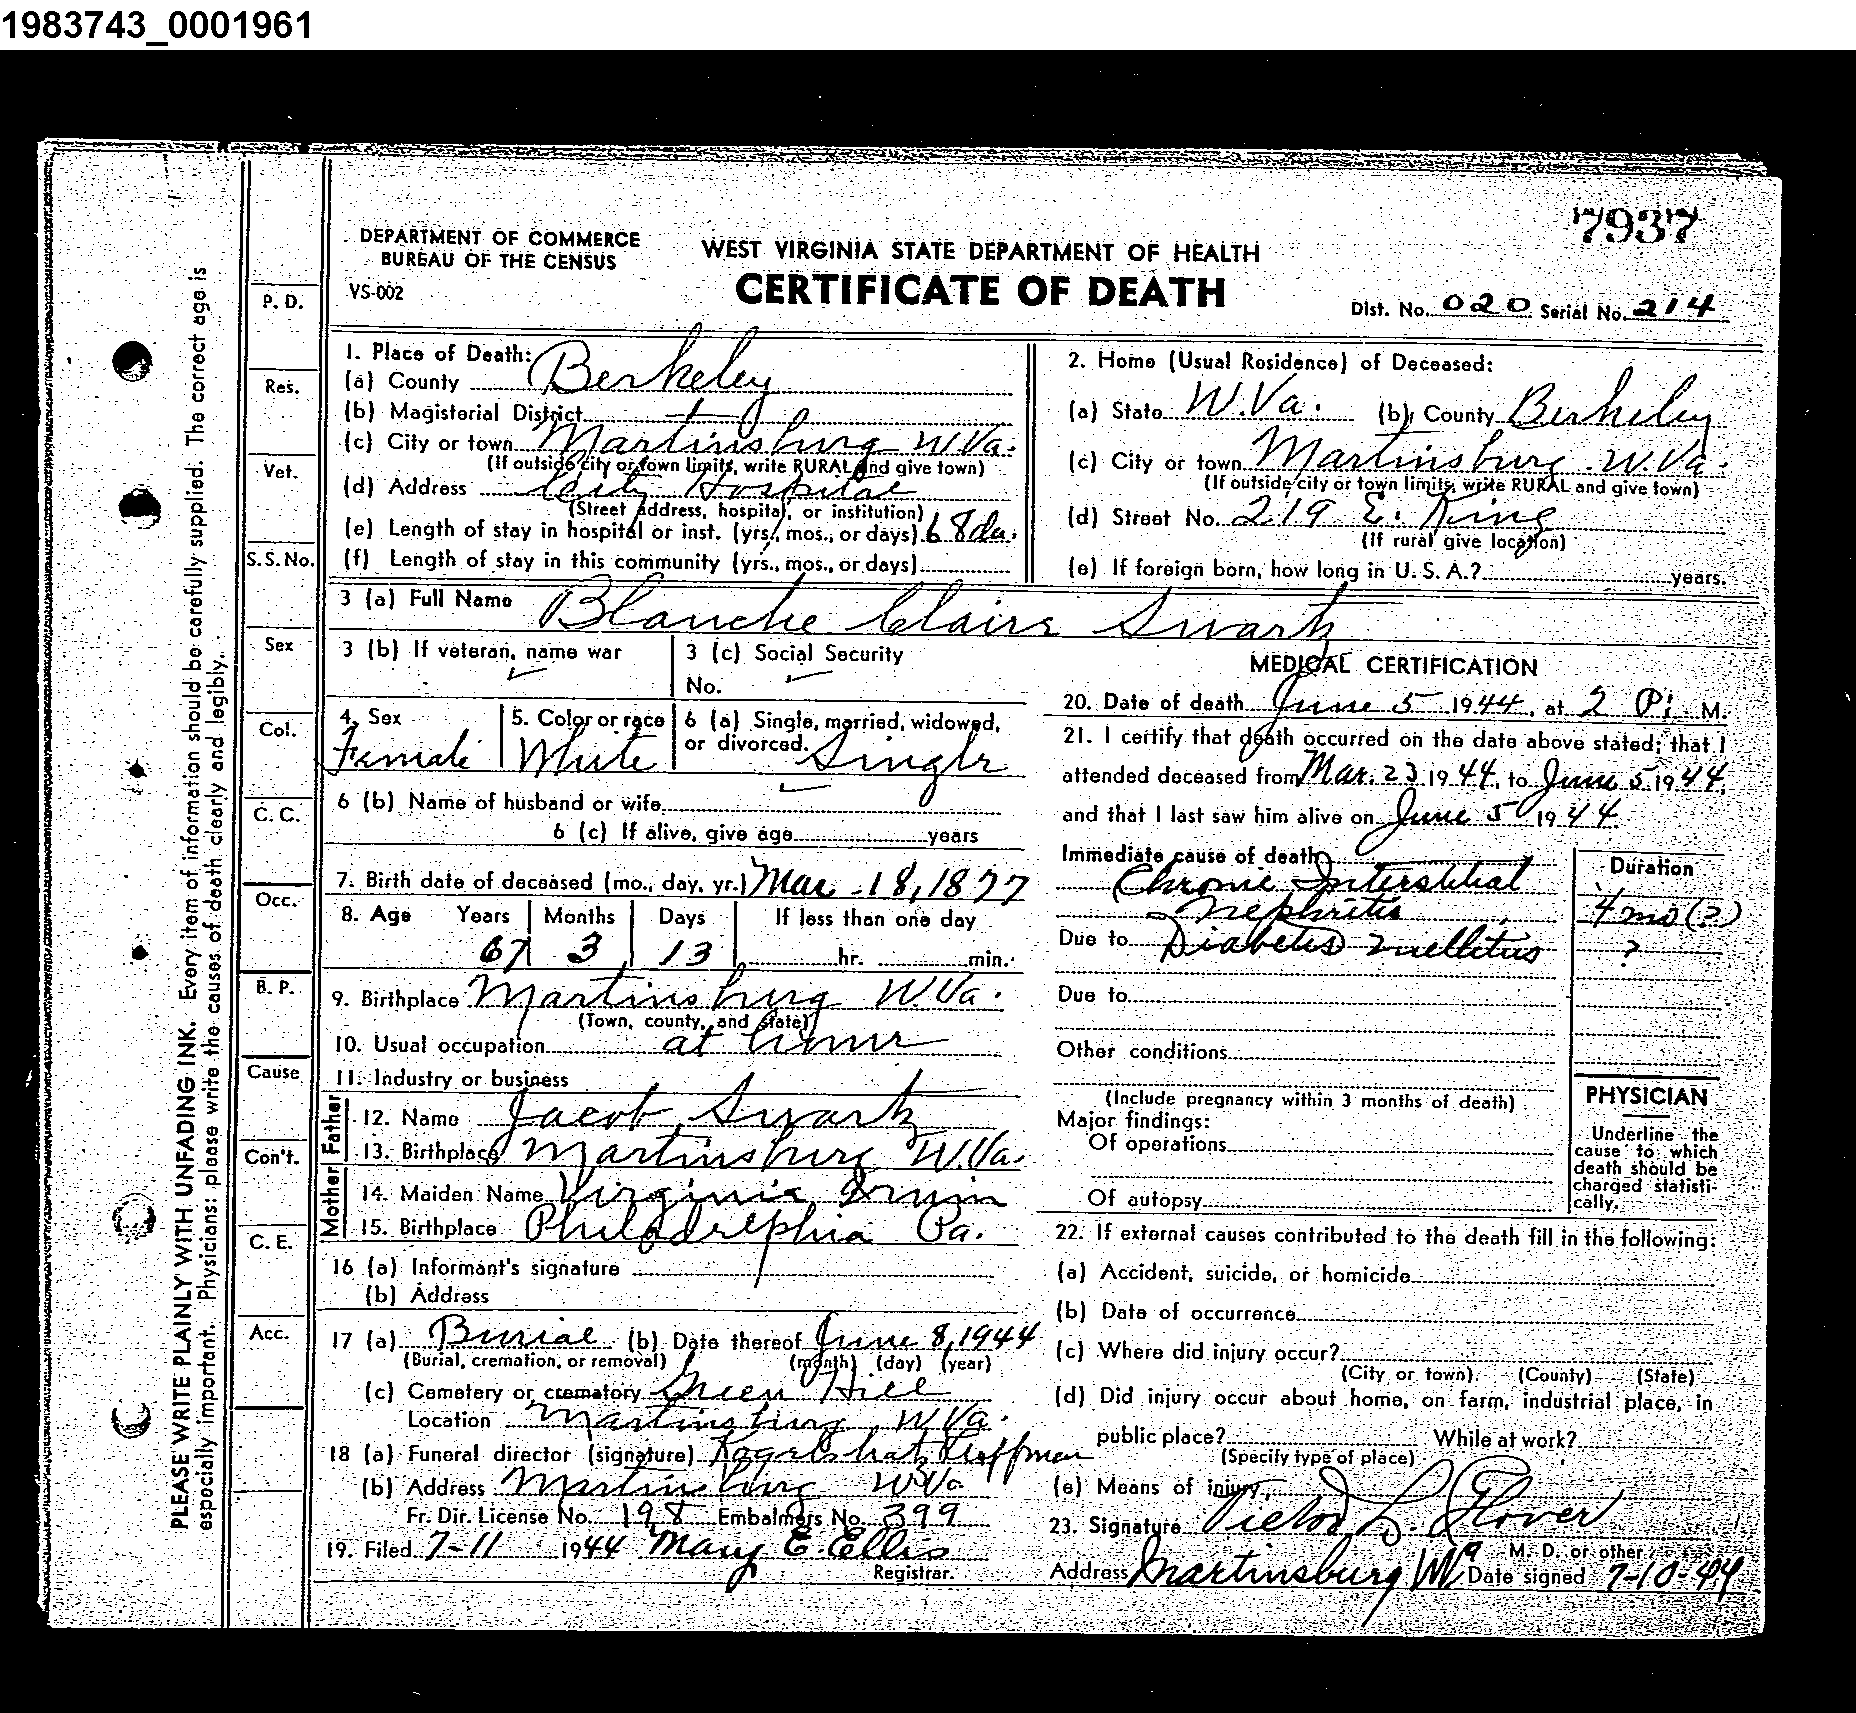 1983743_0001961
7937
DEPARTMENT OF COMMERCE
BUREAU OF THE CENSUS
VS-002
WEST VIRGINIA STATE DEPARTMENT OF HEALTH
CERTIFICATE OF DEATH
Dist. No. 020 Serial No. 214
PLEASE WRITE PLAINLY WITH UNFADING INK. Every item of information should be carefully supplied. The correct age is
especially important. Physicians: please write the causes of death clearly and legibly.
P. D.
Res.
Vet.
S.S.No.
Sex
Col.
C. C.
Occ.
B. P.
Cause
Con't.
C. E.
Acc.
1. Place of Death:
(a) County Berkeley
(b) Magisterial District
(c) City or town Martinsburg W.Va.
(If outside city or town limits, write RURAL and give town)
(d) Address City Hospital
(Street address, hospital, or institution)
(e) Length of stay in hospital or inst. (yrs., mos., or days) 68 da.
(f) Length of stay in this community (yrs., mos., or days)
2. Home (Usual Residence) of Deceased:
(a) State W.Va. (b) County Berkeley
(c) City or town Martinsburg W.Va.
(If outside city or town limits, write RURAL and give town)
(d) Street No. 219 E. King
(If rural give location)
(e) If foreign born, how long in U. S. A.? years.
3 (a) Full Name Blanche Claire Swartz
3 (b) If veteran, name war
3 (c) Social Security
No.
4. Sex Female
5. Color or race White
6 (a) Single, married, widowed,
or divorced. Single
6 (b) Name of husband or wife
6 (c) If alive, give age years
7. Birth date of deceased (mo., day, yr.) Mar. 18, 1877
8. Age Years Months Days If less than one day
67 3 13 hr. min.
9. Birthplace Martinsburg W.Va.
(Town, county, and state)
10. Usual occupation at home
11. Industry or business
Father
12. Name Jacob Swartz
13. Birthplace Martinsburg W.Va.
Mother
14. Maiden Name Virginia Irwin
15. Birthplace Philadelphia Pa.
16 (a) Informant's signature
(b) Address
17 (a) Burial (b) Date thereof June 8, 1944
(Burial, cremation, or removal) (month) (day) (year)
(c) Cemetery or crematory Green Hill
Location Martinsburg W.Va.
18 (a) Funeral director (signature)
(b) Address Martinsburg W.Va
Fr. Dir. License No. 198 Embalmers No. 399
19. Filed 7-11 1944 Mary E. Ellis
Registrar.
MEDICAL CERTIFICATION
20. Date of death June 5 1944, at 2 P. M.
21. I certify that death occurred on the date above stated; that I
attended deceased from Mar. 23 1944, to June 5 1944.
and that I last saw him alive on June 5 1944
Immediate cause of death
Chronic Interstitial
Nephritis
Due to Diabetes mellitus
Due to
Duration
4 mo (?)
?
Other conditions
(Include pregnancy within 3 months of death)
Major findings:
Of operations
Of autopsy
PHYSICIAN
Underline the
cause to which
death should be
charged statisti-
cally.
22. If external causes contributed to the death fill in the following:
(a) Accident, suicide, or homicide
(b) Date of occurrence
(c) Where did injury occur?
(City or town) (County) (State)
(d) Did injury occur about home, on farm, industrial place, in
public place? While at work?
(Specify type of place)
(e) Means of injury
23. Signature Victor L. Glover
M. D. or other
Address Martinsburg WVa Date signed 7-10-44